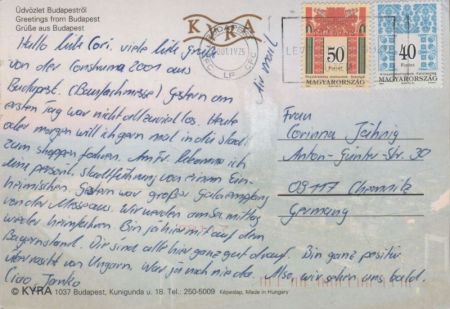 Üdvözlet Budapestről
Greetings from Budapest
Grüße aus Budapest
KYRA
BUDAPEST
50
Forint
MAGYARORSZÁG
40
Forint
MAGYARORSZÁG
Air mail
Hallo liebe Cori, viele liebe Grüße
von der Construma 2001 aus
Budapest. (Baufachmesse) Gestern am
ersten Tag war nicht allzuviel los. Heute
oder morgen will ich gern mal in die Stadt
zum shoppen fahren. Am Fr. bekomme ich
eine persönl. Stadtführung von einem Ein-
heimischen. Gestern war großer Galaempfang
von der Messe aus. Wir werden am So. mittag
wieder heimfahren. Bin ja hier mit auf dem
Bayernstand. Wir sind alle hier ganz gut drauf. Bin ganz positiv
überrascht von Ungarn. War ja noch nie da. Also, wir sehen uns bald.
Ciao Janko
Frau
Corinna Jähnig
Anton-Günther-Str. 30
09117 Chemnitz
Germany
© KYRA 1037 Budapest, Kunigunda u. 18. Tel.: 250-5009 Képeslap, Made in Hungary